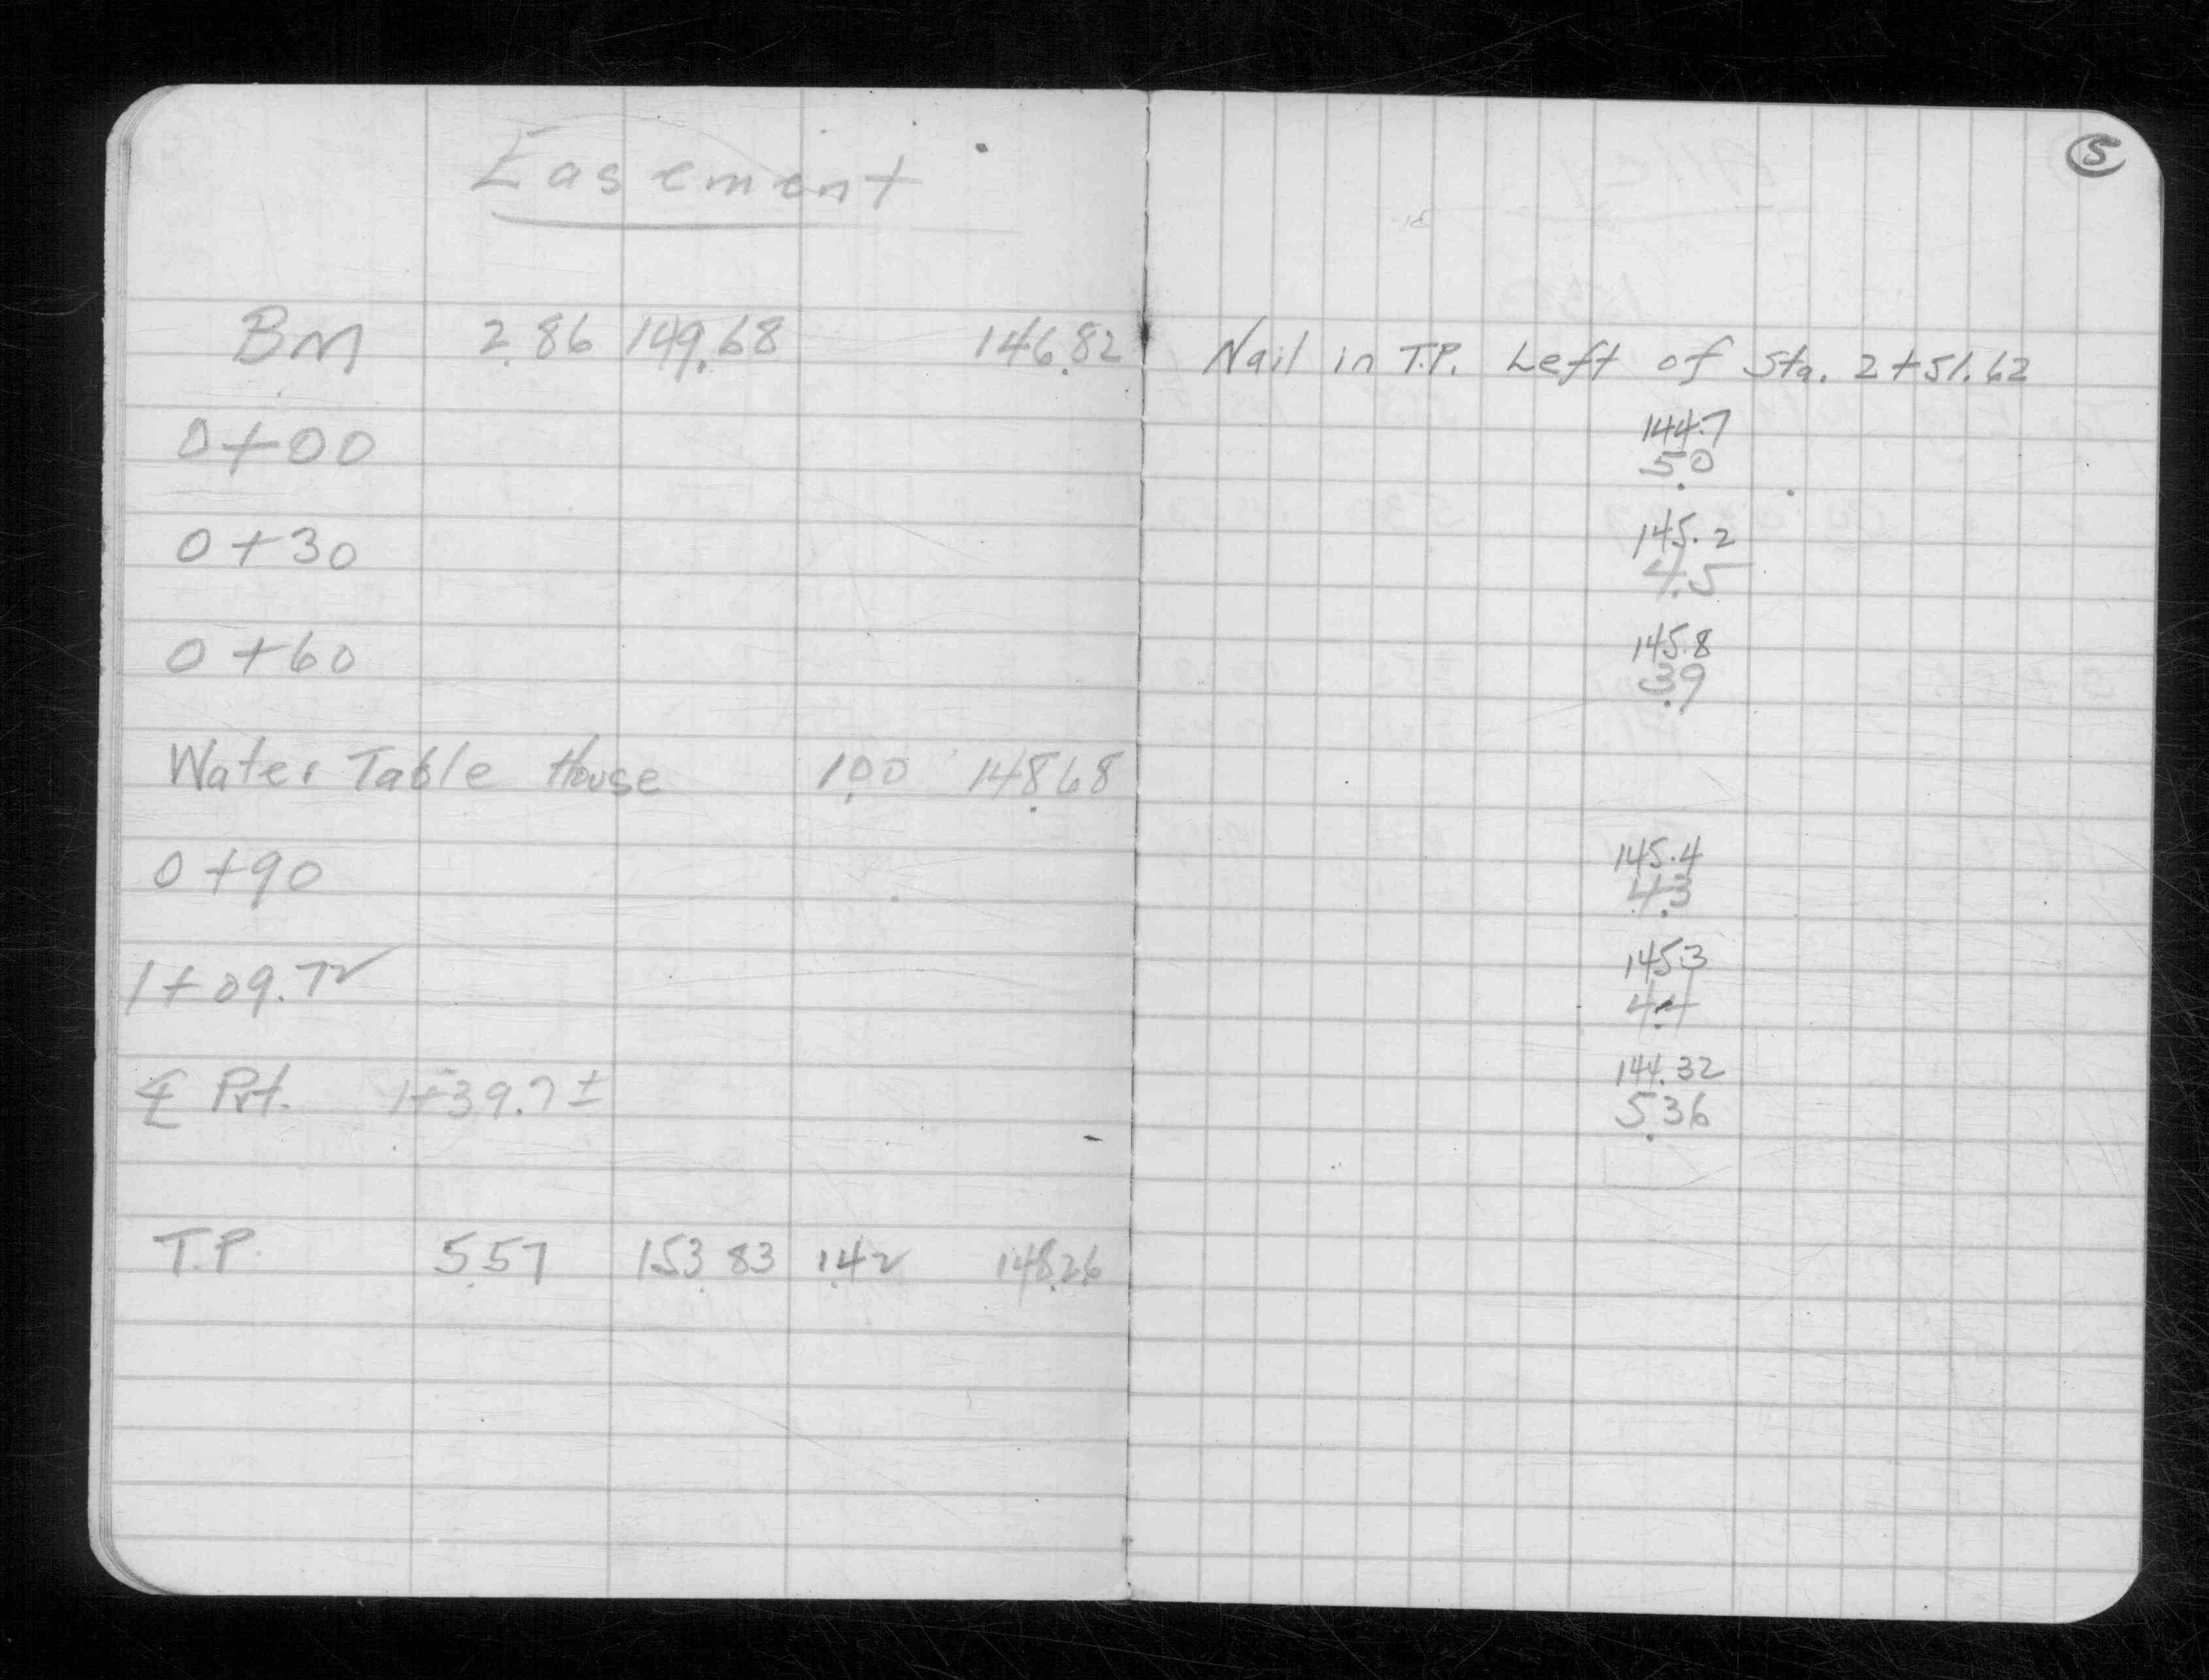 Easement
5
BM 2.86 149.68 146.82 Nail in T.P. Left of Sta. 2+51.62
0+00 144.7
5.0
0+30 145.2
4.5
0+60 145.8
3.9
Water Table House 1.00 148.68
0+90 145.4
4.3
1+09.72 145.3
4.4
℄ Pvt. 1+39.7± 144.32
5.36
T.P. 5.57 153.83 1.42 148.26